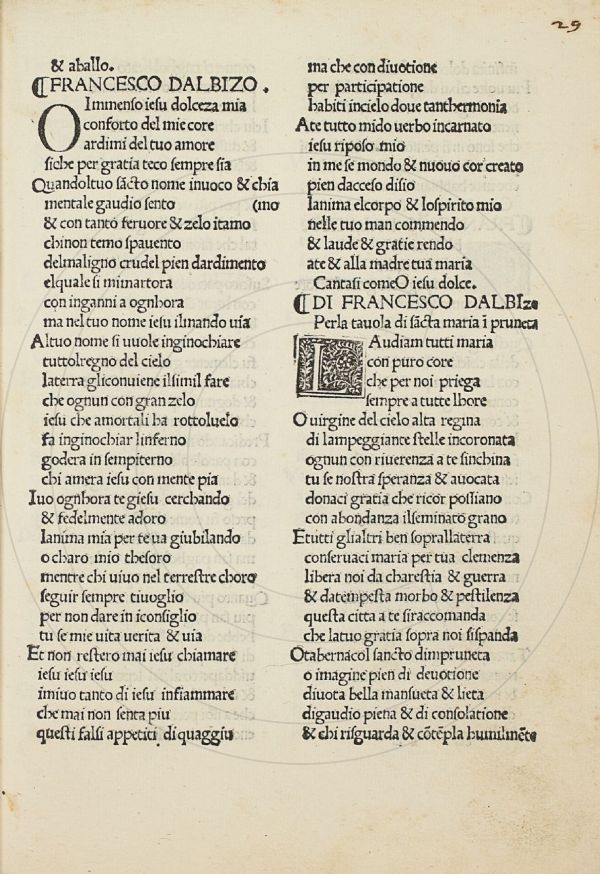 29
& aballo.
⁋FRANCESCO DALBIZO.
O Immenso iesu dolceza mia
conforto del mie core
ardimi del tuo amore
siche per gratia teco sempre sia
Quandoltuo sãcto nome inuoco & chia
mentale gaudio sento (mo
& con tanto feruore & zelo itamo
chinon temo spauento
delmaligno crudel pien dardimento
elquale si mimartora
con inganni a ognhora
ma nel tuo nome iesu ilmando uia
Altuo nome si uuole inginochiare
tuttolregno del cielo
laterra gliconuiene ilsimil fare
che ognun con gran zelo
iesu che amortali ha rottoluelo
fa inginochiar linferno
godera in sempiterno
chi amera iesu con mente pia
Iuo ognhora te giesu cerchando
& fedelmente adoro
lanima mia per te ua giubilando
o charo mio thesoro
mentre chi uiuo nel terrestre choro
seguir sempre tiuoglio
per non dare in iconsiglio
tu se mie uita uerita & uia
Et non restero mai iesu chiamare
iesu iesu iesu
imiuo tanto di iesu infiammare
che mai non senta piu
questi falsi appetiti di quaggiu
ma che con diuotione
per participatione
habiti incielo doue tanthermonia
Ate tutto mido uerbo incarnato
iesu riposo mio
in me se mondo & nuouo cor creato
pien dacceso disio
lanima elcorpo & lospirito mio
nelle tuo man commendo
& laude & gratie rendo
ate & alla madre tua maria
Cantasi comeO iesu dolce.
⁋DI FRANCESCO DALBIzo
Perla tauola di sãcta maria ĩ pruneta
LAudiam tutti maria
con puro core
che per noi priega
sempre a tutte lhore
O uirgine del cielo alta regina
di lampeggiante stelle incoronata
ognun con riuerenza a te sinchina
tu se nostra speranza & auocata
donaci gratia che ricor possiano
con abondanza ilseminato grano
Etutti glialtri ben soprallaterra
conseruaci maria per tua clemenza
libera noi da charestia & guerra
& datempesta morbo & pestilenza
questa citta a te siraccomanda
che latuo gratia sopra noi sispanda
Otabernacol sancto dimpruneta
o imagine pien di deuotione
diuota bella mansueta & lieta
digaudio piena & di consolatione
& chi risguarda & cõtẽpla humilmẽte